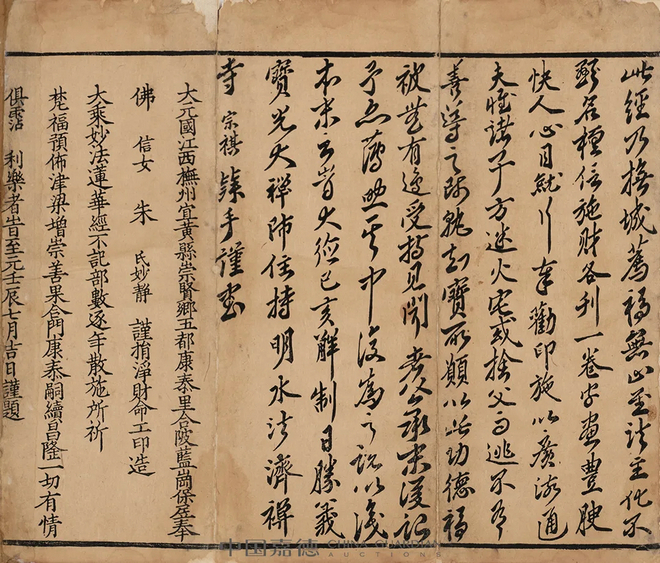 此經乃撫城薦福無山法主化不
名種信施財各刊一卷字畫豊腴
快人心目就奉勸印施以廣流通
夫惟諸子方迷火宅或捨父而逃不有
善導之師孰知寶所願以此功德福
被無有邊受持見聞
予中復為以識
本末云旹大德己亥解制日勝義
寶光大禪師住持明水法濟禪
寺 宗祺 手謹書
大元國江西撫州宜黃縣崇賢鄉五都康泰里合陂藍崗保居奉
佛 信女 朱 氏妙靜 謹捐淨財命工印造
大乘妙法蓮華經不記部數逐年散施所祈
梵福預佈津梁增崇善果合門康泰嗣續昌隆一切有情
俱霑 利樂者旹至元壬辰七月吉日謹題
中国嘉德 CHINA GUARDIAN
AUCTIONS